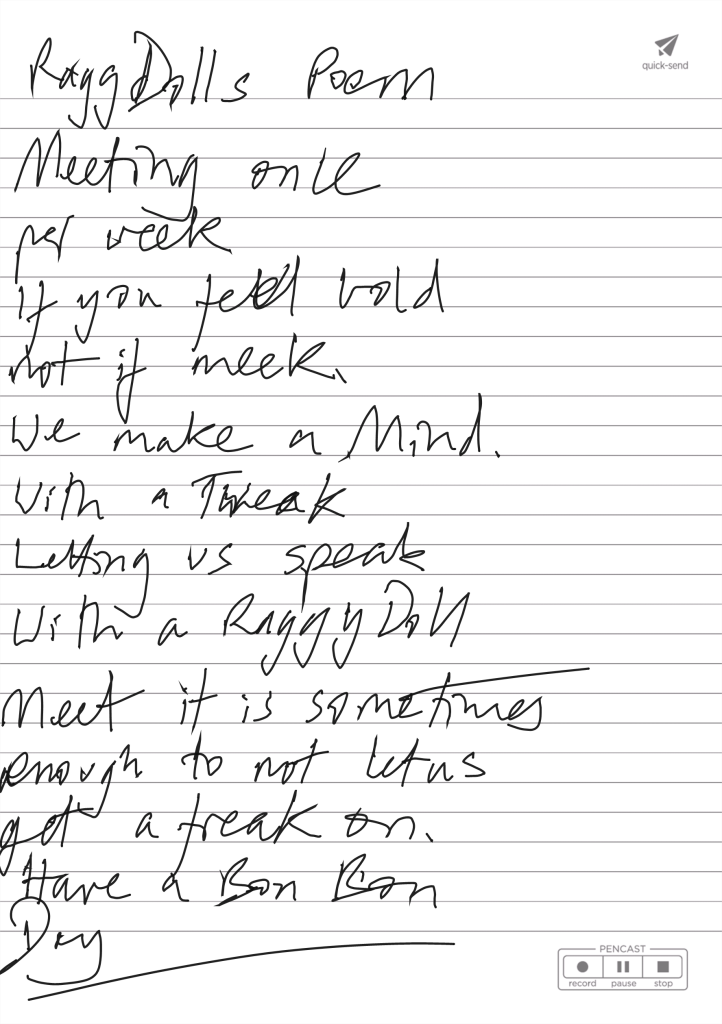 RaggDolls Poem
quick-send
Meeting once
per week
If you feel bold
not if meek.
We make a Mind.
With a Tweak
Letting us speak
With a RaggyDoll
Meet it is sometimes
enough to not let us
get a freak on.
Have a Bon Bon
Day
PENCAST
record pause stop